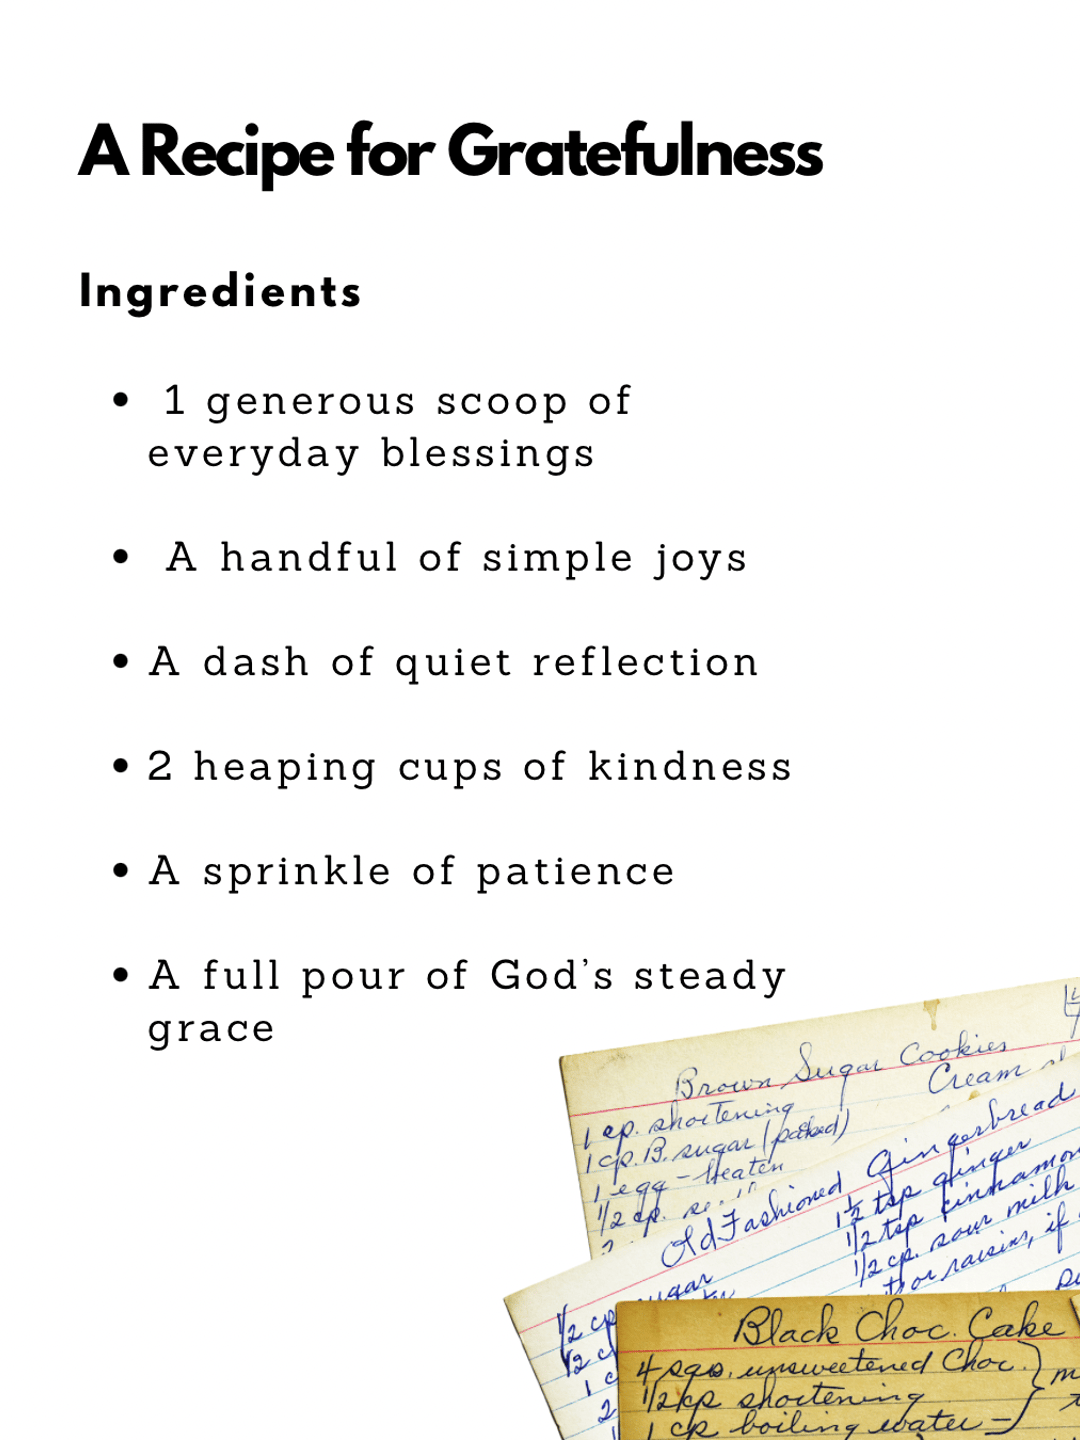 A Recipe for Gratefulness
Ingredients
• 1 generous scoop of
everyday blessings
• A handful of simple joys
• A dash of quiet reflection
• 2 heaping cups of kindness
• A sprinkle of patience
• A full pour of God's steady
grace
Brown Sugar Cookies
Cream
1 cp. shortening
1 cp. B. sugar (packed)
1 egg - beaten
1/2 cp.
Old Fashioned Gingerbread
1 1/2 tsp ginger
1/2 tsp cinnamon
1/2 cp. sour milk
or raisins, if
sugar
1/2 cp
1/2 c
1 c
2
Black Choc. Cake
4 sqs. unsweetened Choc.
1/2 cp shortening
1 cp boiling water -